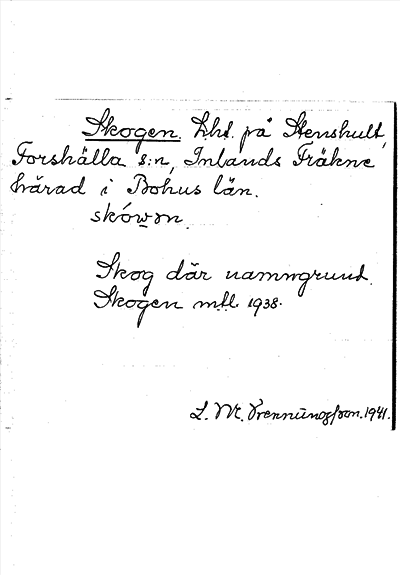 Skogen. Lht. på Stenshult,
Forshälla s:n, Inlands Fräkne
härad i Bohus län.
skówən.
Skog där namngrund.
Skogen mtl 1938.
L. M. Svenningsson. 1941.